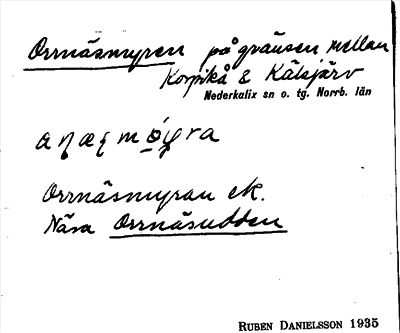 Orrnäsmyren på gränsen mellan
Korpikå & Kälsjärv
Nederkalix sn o. tg. Norrb. län
Orrnäsmyran ek.
Nära Orrnäsudden
RUBEN DANIELSSON 1935